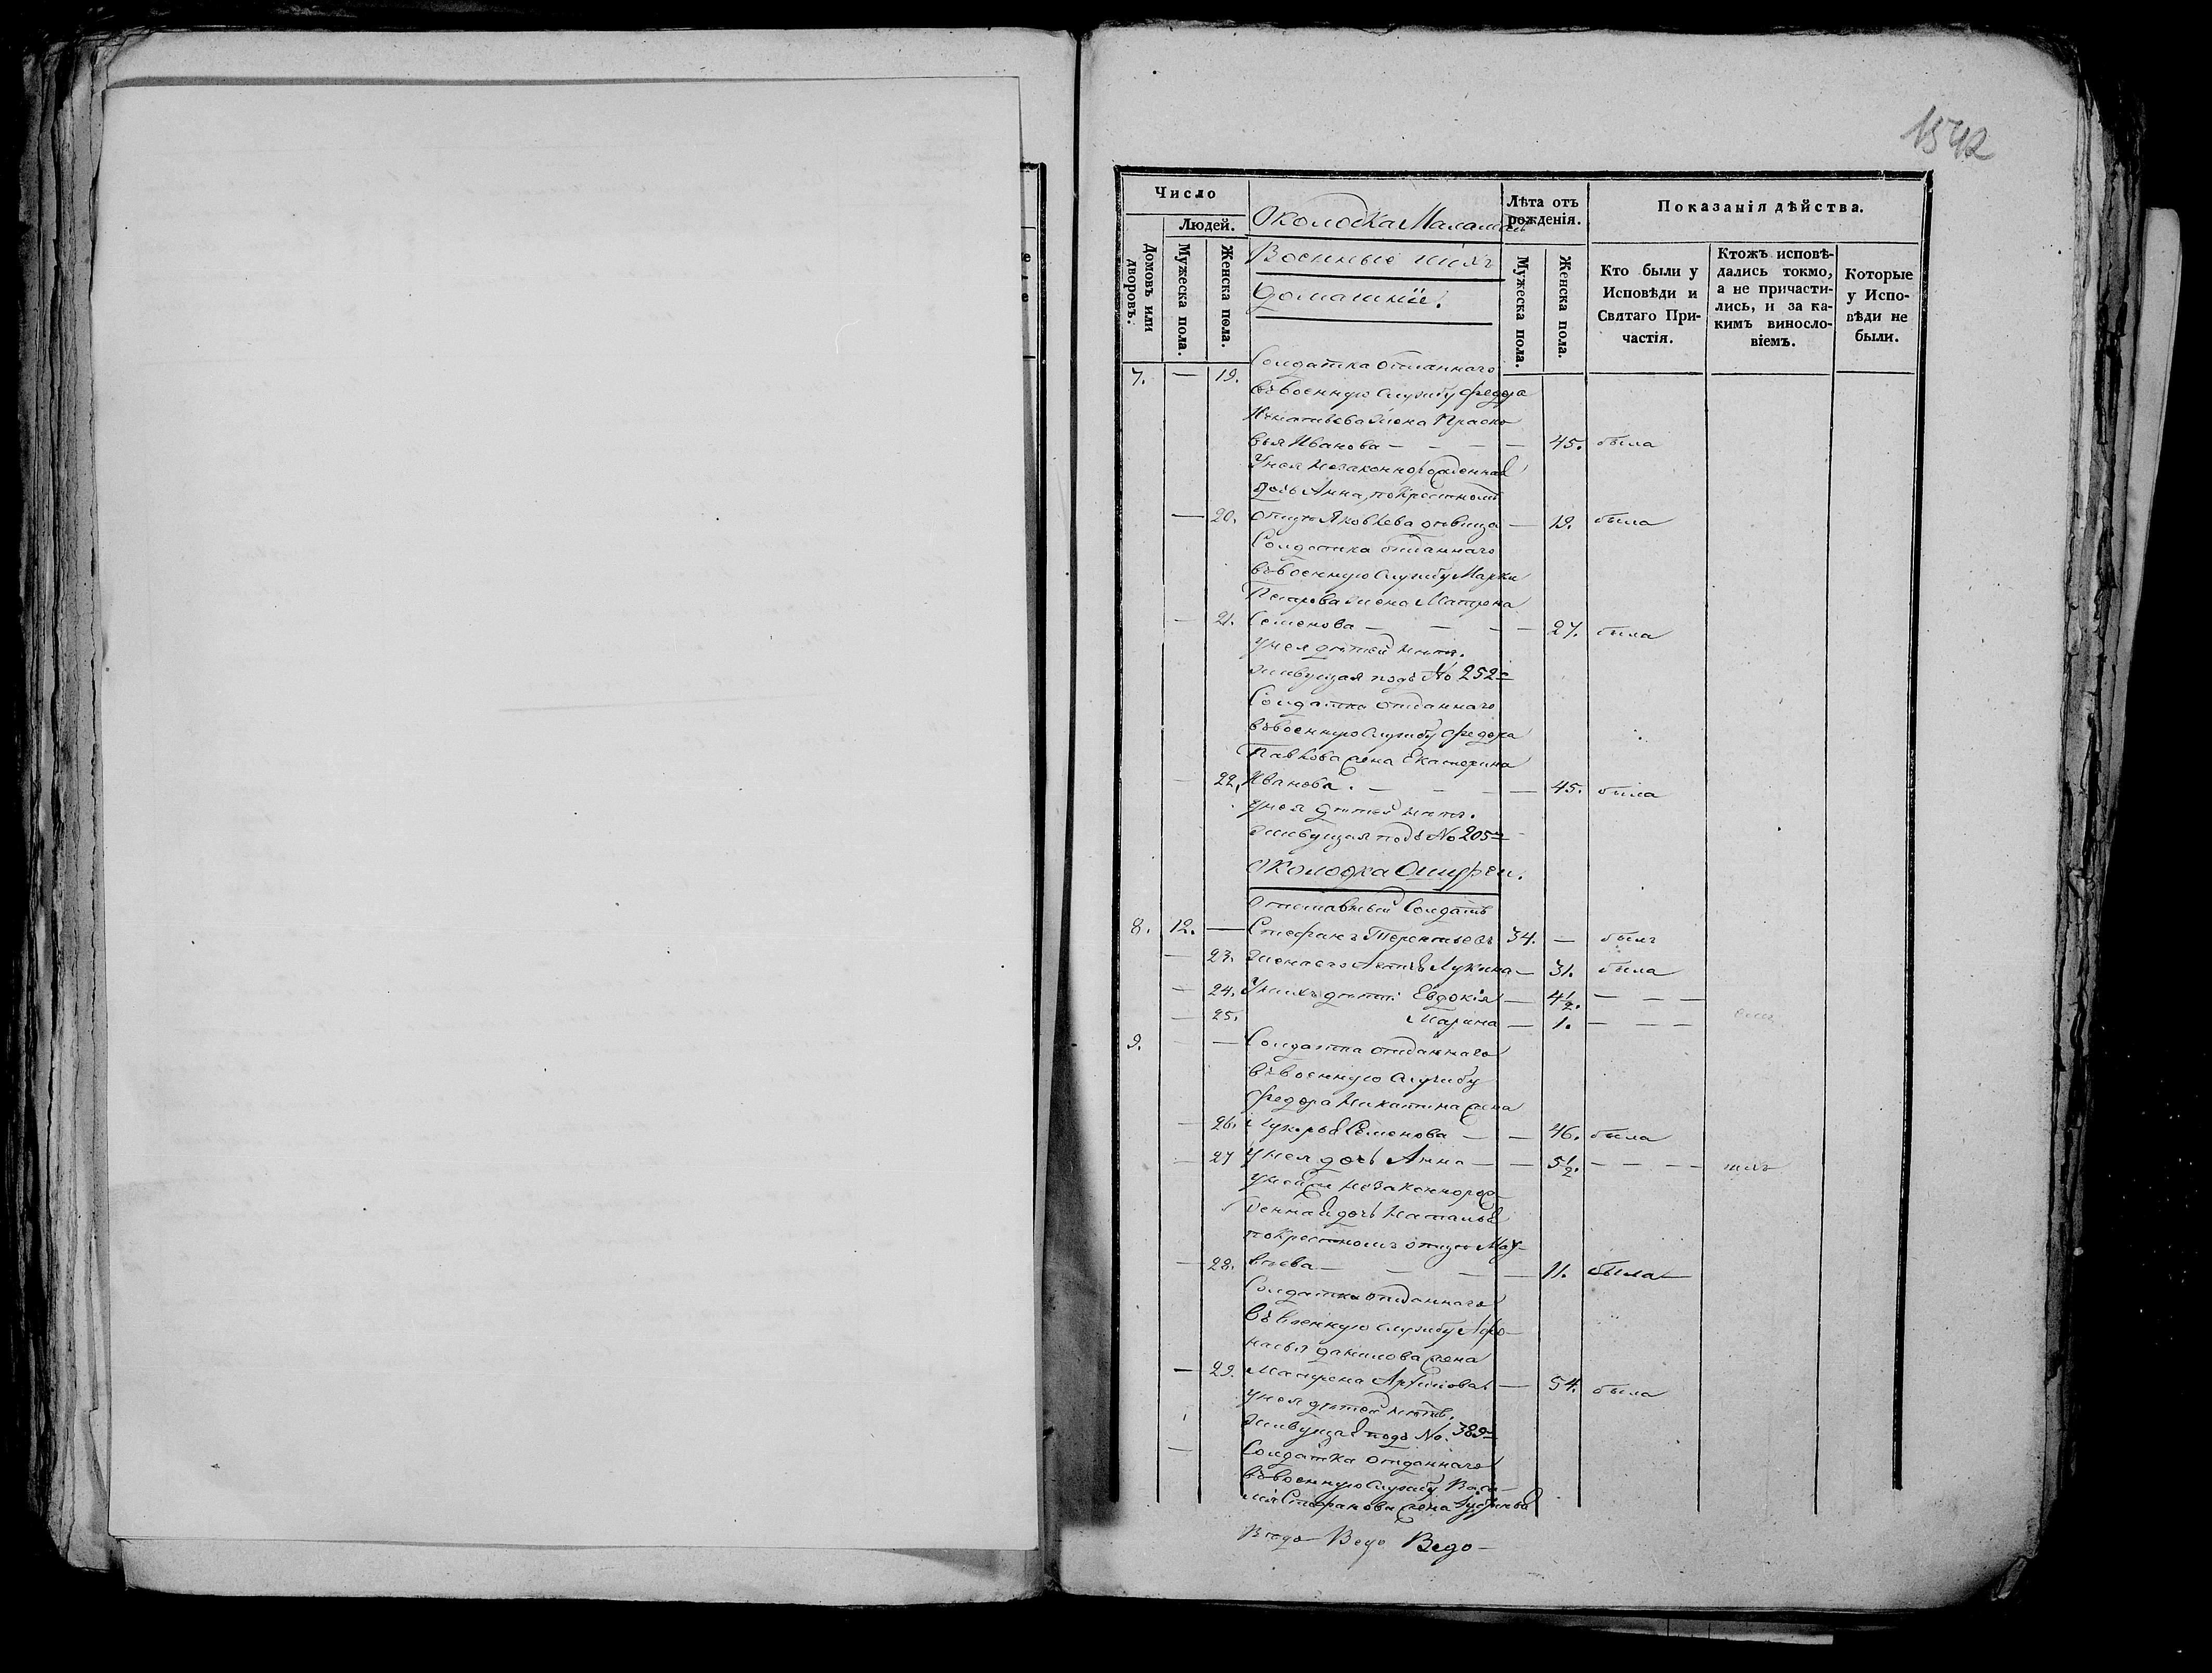 1542
Число
Людей.
Домовъ или дворовъ.
Мужеска пола.
Женска пола.
Околодка
Военные ихъ
домашнiе.
Лѣта отъ рожденiя.
Мужеска пола.
Женска пола.
Показанiя дѣйства.
Кто были у Исповѣди и Святаго Причастiя.
Ктожъ исповѣдались токмо, а не причастились, и за какимъ винословiемъ.
Которые у Исповѣди не были.
7. — 19. Солдатка отданнаго
въ военную службу Федора
Игнатьева жена Праско
вья Иванова — — — — 45. была
У нея незаконнорожденная
дочь Анна, по крестному
— 20. отцу Яковлева девица — 19. была
Солдатка отданнаго
въ военную службу Марки
Петрова жена Матрона
— 21. Семенова — — — — 27. была
У нея дѣтей нѣтъ.
живущая подъ № 252
Солдатка отданнаго
въ военную службу Федора
Павлова жена Екатерина
— 22. Иванова. — — — — 45. была
У нея дѣтей нѣтъ.
живущая подъ № 205
Околодка
Отставный Солдатъ
8. 12. — Стефанъ Терентьевъ 34. — былъ
— 23. жена его Лукина — 31. была
— 24. У нихъ дѣти: Евдокiя — 4½. — — —
— 25. Марина — 1. — — —
9. — Солдатка отданнаго
въ военную службу
Федора Никитина жена
— 26. Лукерья Семенова — — 46. была
— 27 У нея дочь Анна — — 5½. — — —
У ней же незаконнорож
денная дочь Наталья
по крестномъ отцу Мат
— 28. вѣева — — — — 11. была —
Солдатка отданнаго
въ военную службу Афо
насья Данилова жена
— 29. Матрена Архипова. — 54. была
У нея дѣтей нѣтъ.
живущая подъ №. 389
— Солдатка отданнаго
въ военную службу Васи
лья Стефанова жена
Ведо —